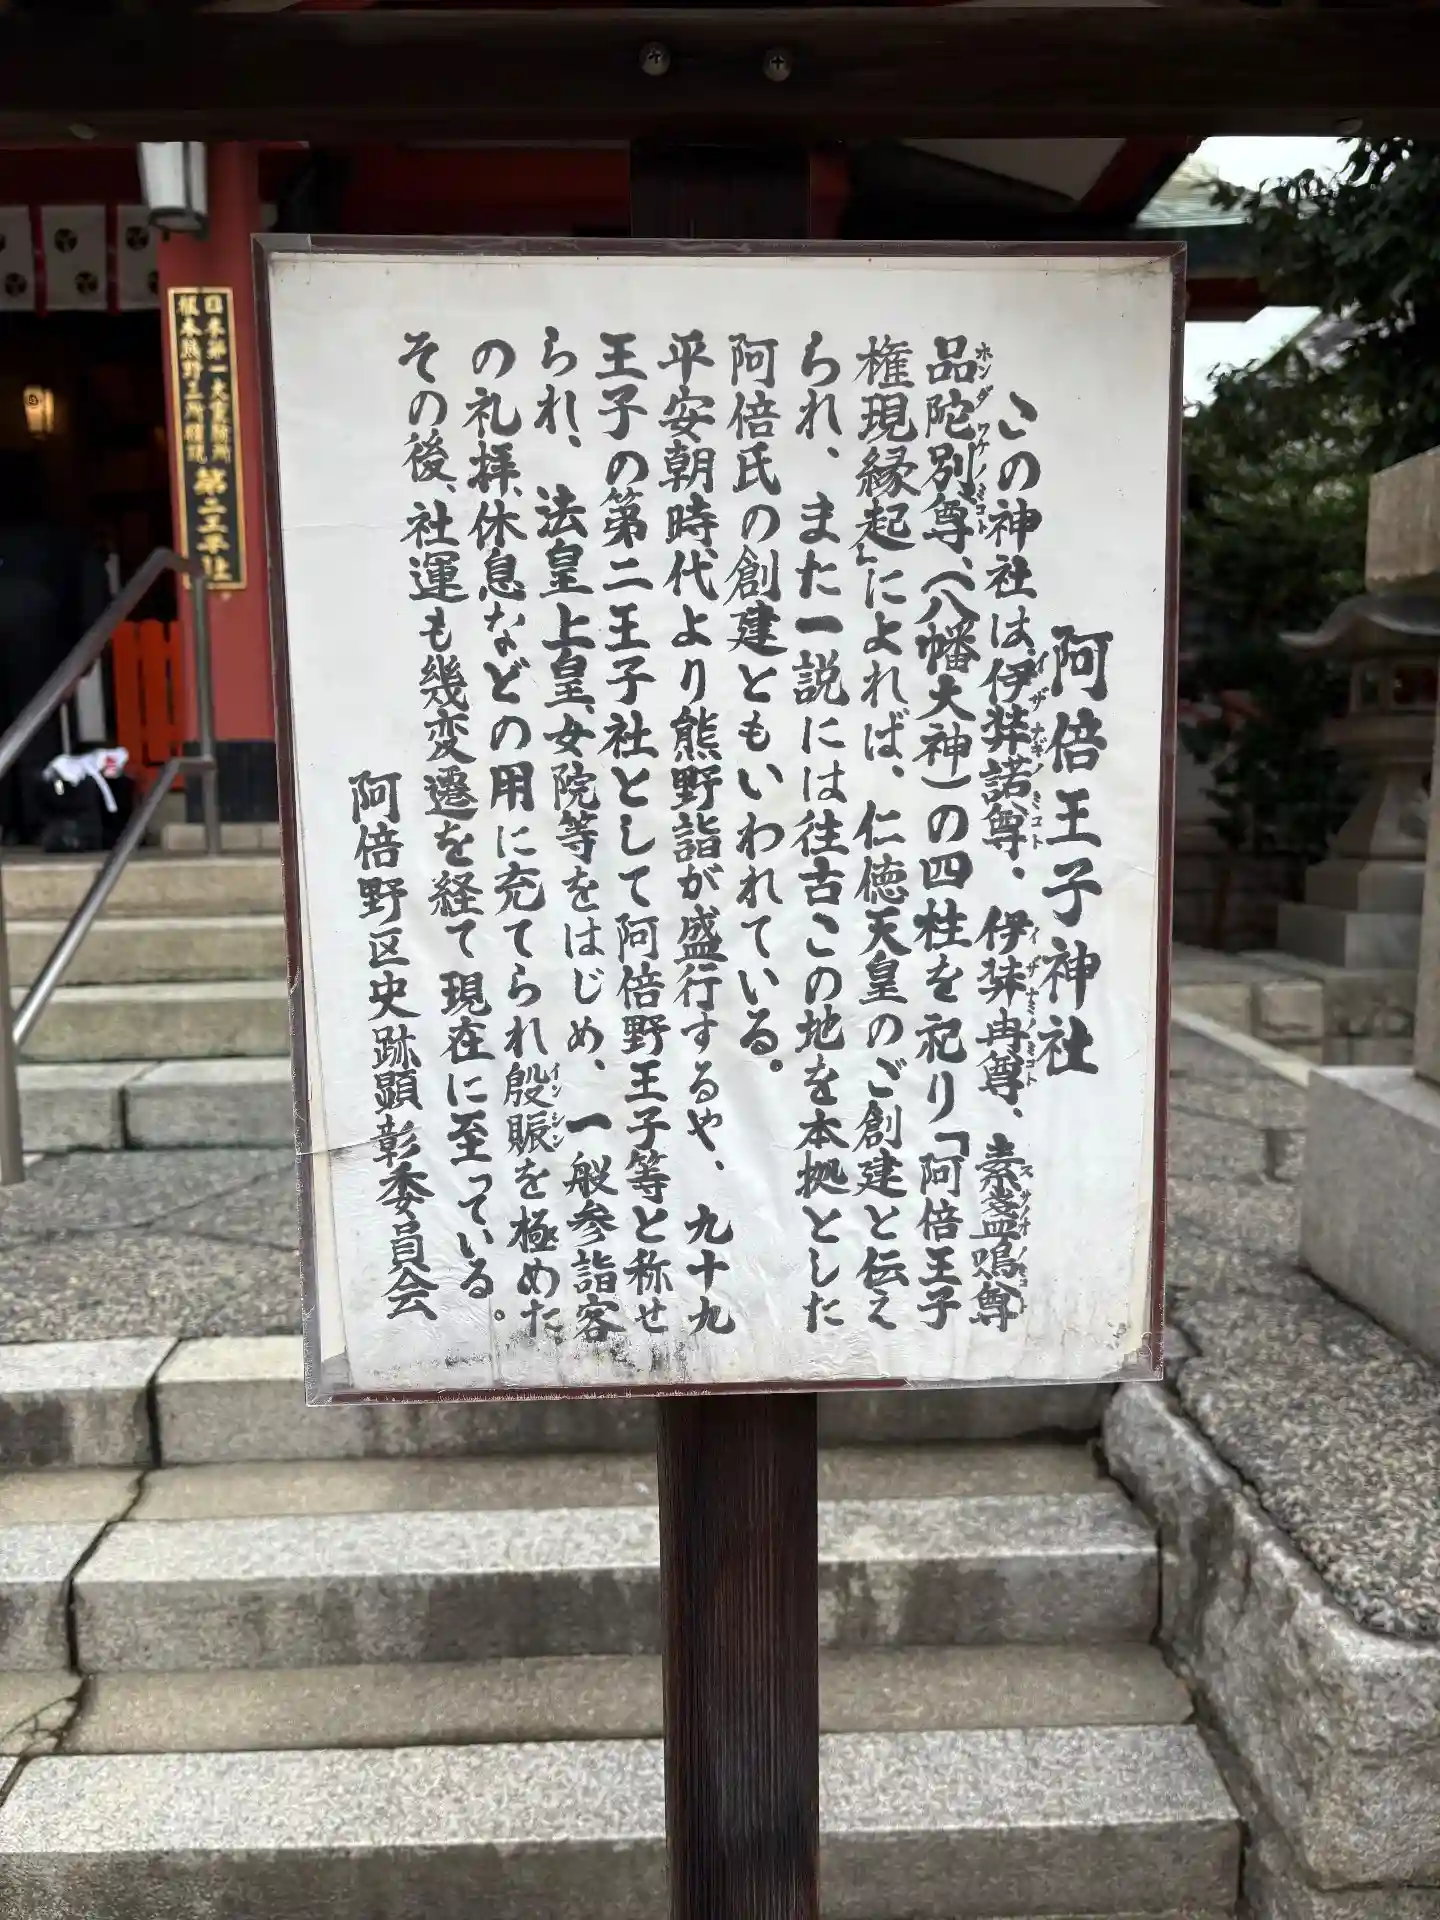 阿倍王子神社
この神社は、伊弉諾尊、伊弉冉尊、素盞嗚尊
イザナギノミコト
イザナミノミコト
スサノオノミコト
品陀別尊、(八幡大神)の四柱を祀り「阿倍王子
ホンダワケノミコト
権現縁起」によれば、仁徳天皇のご創建と伝え
られ、また一説には往古この地を本拠とした
阿倍氏の創建ともいわれている。
平安朝時代より熊野詣が盛行するや、九十九
王子の第二王子社として阿倍野王子等と称せ
られ、法皇、上皇、女院等をはじめ、一般参詣客
の礼拝、休息などの用に充てられ殷賑を極めた。
インシン
その後、社運も幾変遷を経て現在に至っている。
阿倍野区史跡顕彰委員会
日本第一大霊験所
根本熊野三所権現
第二王子社